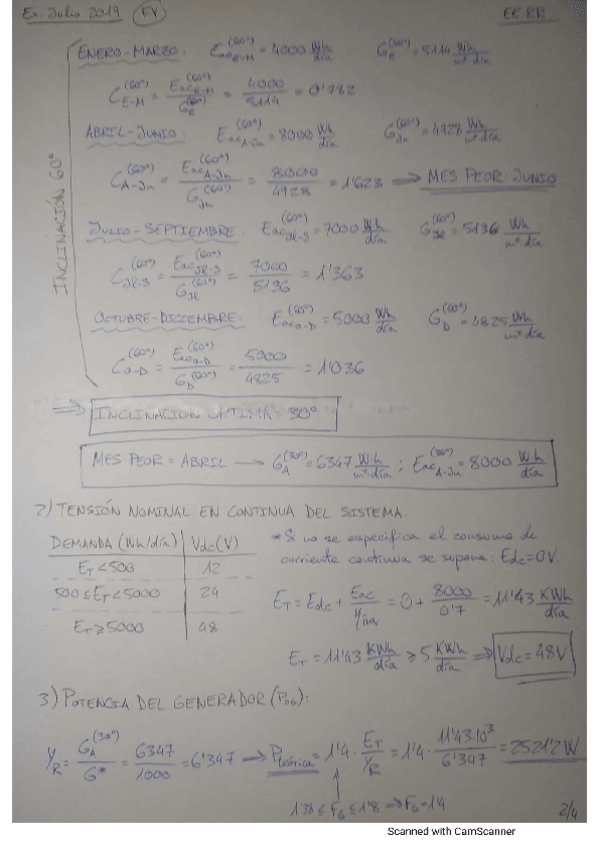 Ex. Julio 2019 (FV) EE.RR.
INCLINACIÓN 60°
ENERO-MARZO: Eac_E-M^(60°) = 4000 Wh/día G_E^(60°) = 5114 Wh/m² día
C_E-M^(60°) = Eac_E-M^(60°)/G_E^(60°) = 4000/5114 = 0'782
ABRIL-JUNIO: Eac_A-Jn^(60°) = 8000 Wh/día G_Jn^(60°) = 4928 Wh/m² día
C_A-Jn^(60°) = Eac_A-Jn^(60°)/G_Jn^(60°) = 8000/4928 = 1'623 → MES PEOR: JUNIO
JULIO-SEPTIEMBRE: Eac_Jl-S^(60°) = 7000 Wh/día G_Jl^(60°) = 5136 Wh/m² día
C_Jl-S^(60°) = Eac_Jl-S^(60°)/G_Jl^(60°) = 7000/5136 = 1'363
OCTUBRE-DICIEMBRE: Eac_O-D^(60°) = 5000 Wh/día G_D^(60°) = 4825 Wh/m² día
C_O-D^(60°) = Eac_O-D^(60°)/G_D^(60°) = 5000/4825 = 1'036
⇒ INCLINACIÓN ÓPTIMA = 30°
MES PEOR = ABRIL → G_A^(30°) = 6347 W·h/m² día ; Eac_A-Jn^(30°) = 8000 W·h/día
2) TENSIÓN NOMINAL EN CONTINUA DEL SISTEMA.
DEMANDA (Wh/día) Vdc (V)
E_T < 500 12
500 ≤ E_T < 5000 24
E_T ≥ 5000 48
* Si no se especifica el consumo de
corriente continua se supone: Edc = 0V.
E_T = Edc + Eac/η_inv = 0 + 8000/0'7 = 11'43 KWh/día
E_T = 11'43 KWh/día ≥ 5 KWh/día ⇒ Vdc = 48V
3) POTENCIA DEL GENERADOR (P_OG):
Y_R = G_A^(30°)/G* = 6347/1000 = 6'347 → P_teórica = 1'4 · E_T/Y_R = 1'4 · 11'43·10³/6'347 = 2521'2 W
≤ F_G ≤ 1'8 ⇒ F_G = 1'4
2/4
Scanned with CamScanner